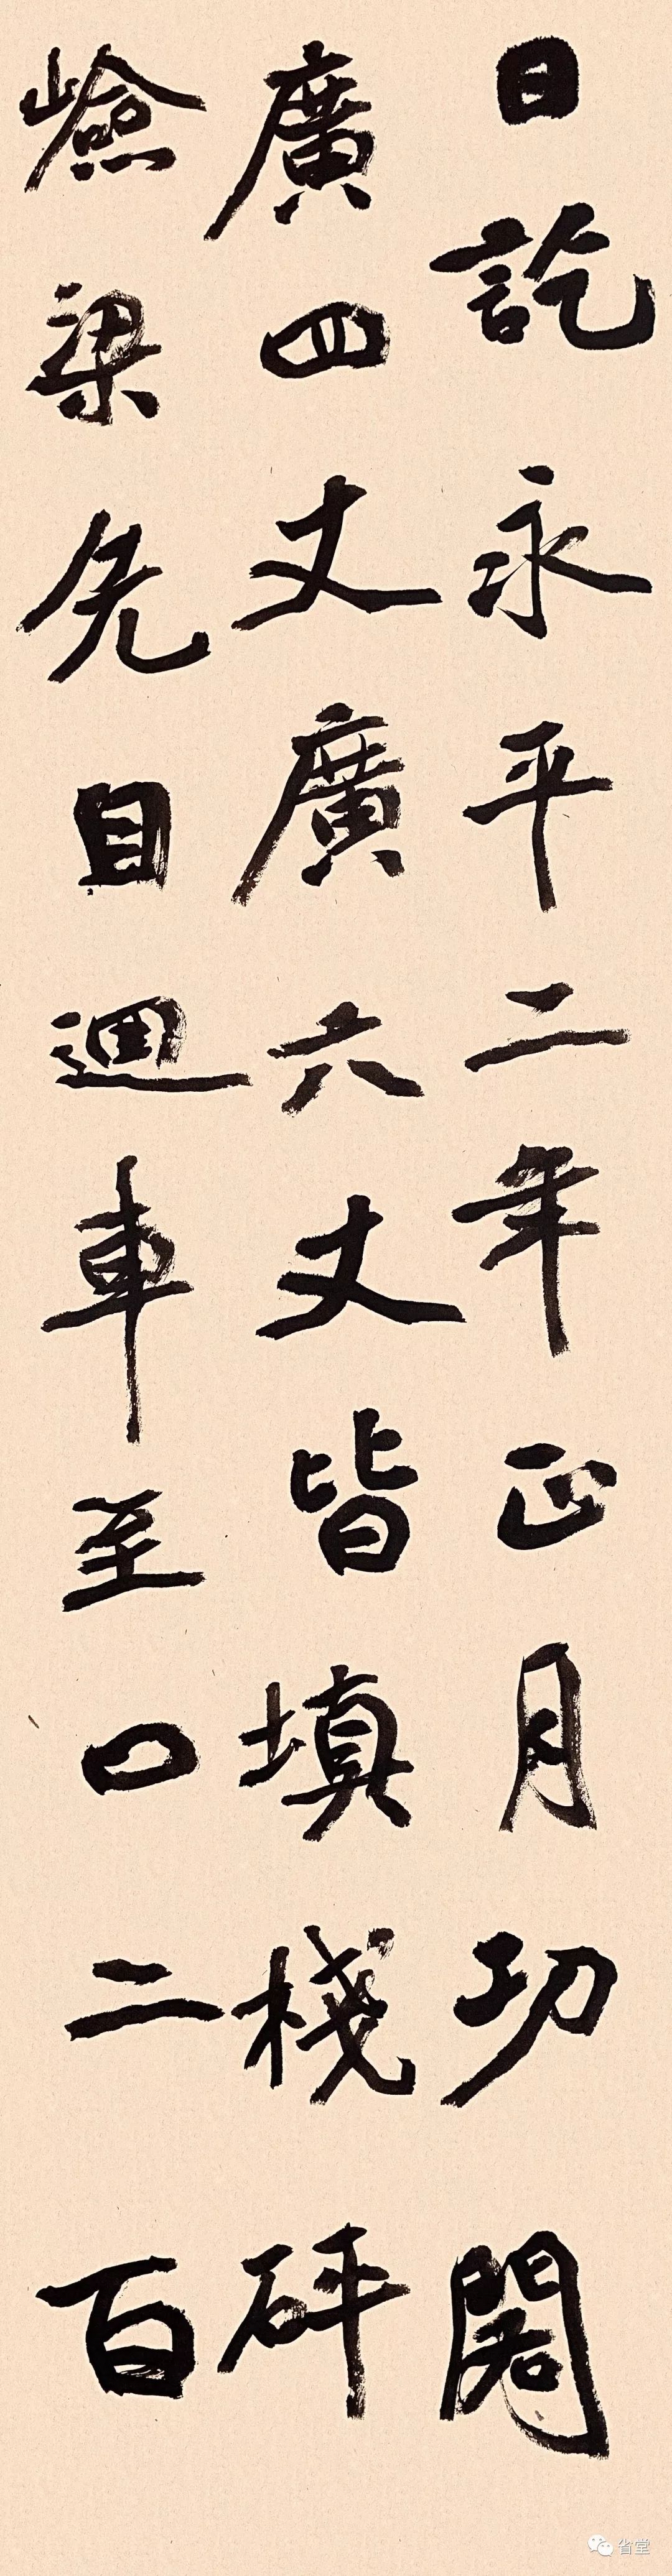 日訖永平二年正月功閣
廣四丈廣六丈皆填棧砰
嶮梁危自迴車至口二百
省堂